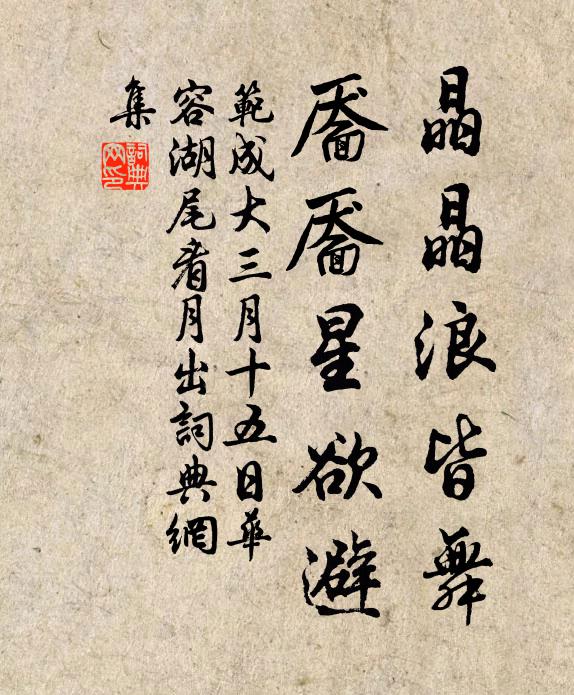 晶晶浪皆舞
靥靥星欲避
範成大三月十五日華
容湖尾看月出詞典網
集
詞典
网印